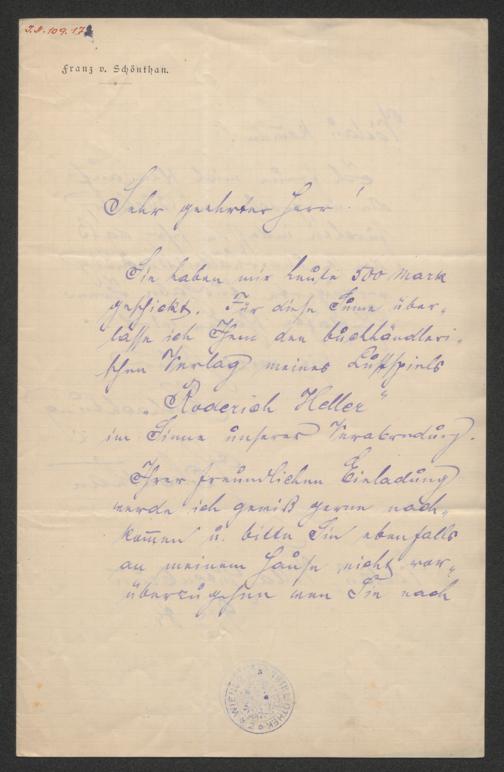 I.N. 109.17
Franz v. Schönthan.
Sehr geehrter Herr!
Sie haben mir heute 500 Mark
geschickt. Für diese Sume über-
lasse ich Ihnen den buchhändleri-
schen Verlag meines Lustspiels
„Roderich Heller"
im Sinne unserer Verabredung.
Ihrer freundlichen Einladung
werde ich gewiß gerne nach-
kommen u. bitte Sie ebenfalls
an meinem Hause nicht vor-
überzugehen wen Sie nach
WIENER STADTBIBLIOTHEK